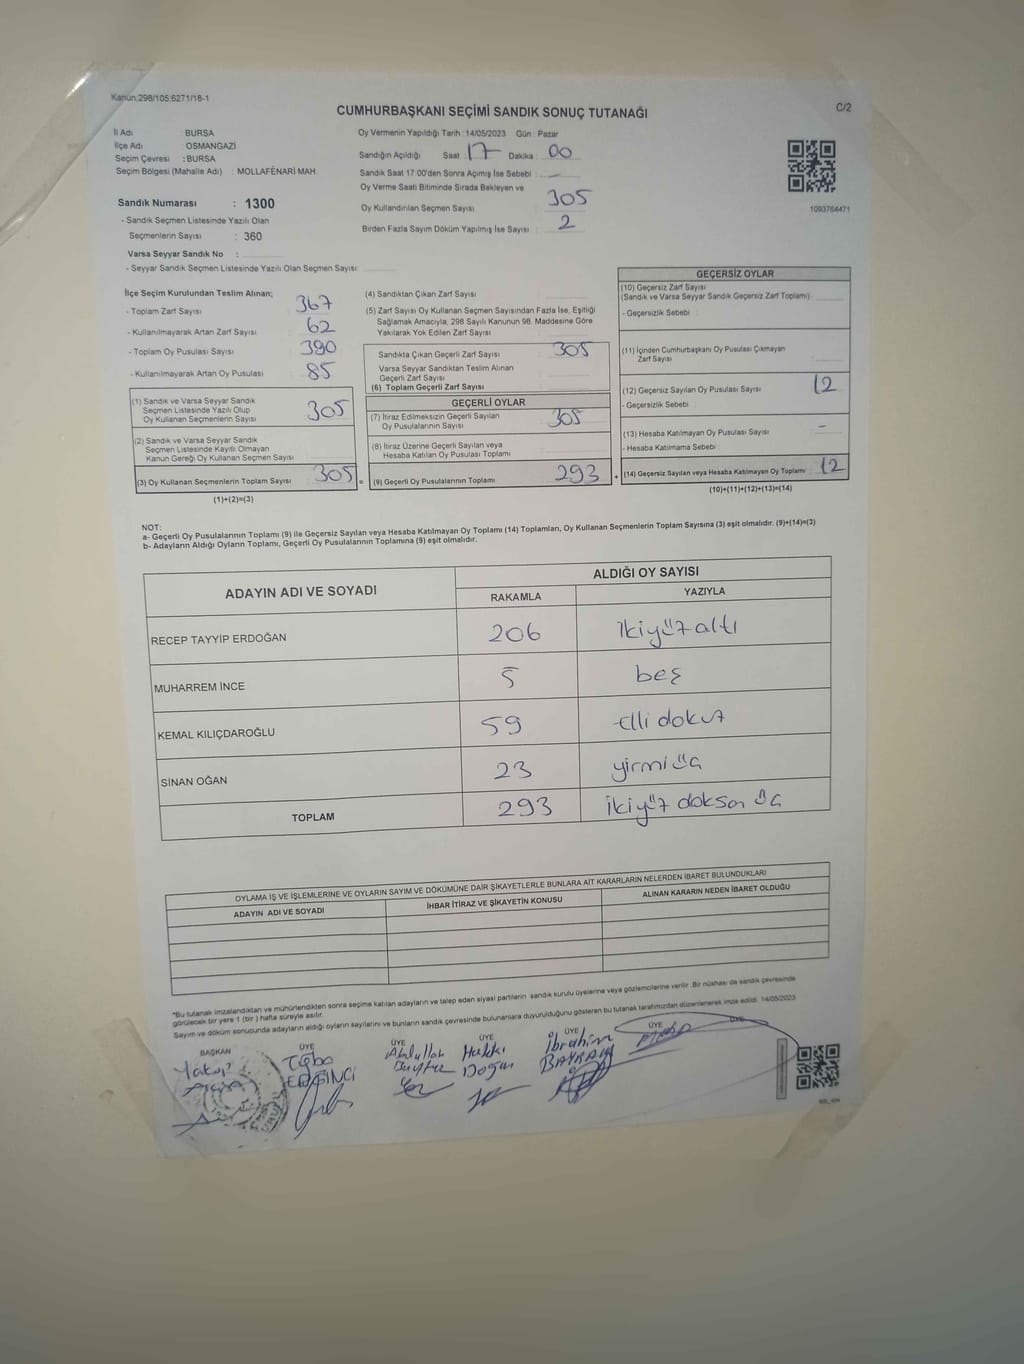 Kanun;298/105;6271/18-1
CUMHURBAŞKANI SEÇİMİ SANDIK SONUÇ TUTANAĞI
C/2
İl Adı : BURSA
İlçe Adı : OSMANGAZİ
Seçim Çevresi : BURSA
Seçim Bölgesi (Mahalle Adı) : MOLLAFENARİ MAH.
Sandık Numarası : 1300
- Sandık Seçmen Listesinde Yazılı Olan
Seçmenlerin Sayısı : 360
Varsa Seyyar Sandık No :
- Seyyar Sandık Seçmen Listesinde Yazılı Olan Seçmen Sayısı
Oy Vermenin Yapıldığı Tarih : 14/05/2023 Gün : Pazar
Sandığın Açıldığı Saat 17 Dakika : 00
Sandık Saat 17:00'den Sonra Açımış İse Sebebi : -
Oy Verme Saati Bitiminde Sırada Bekleyen ve
Oy Kullandırılan Seçmen Sayısı 305
Birden Fazla Sayım Döküm Yapılmış İse Sayısı 2
1093764471
İlçe Seçim Kurulundan Teslim Alınan;
- Toplam Zarf Sayısı 367
- Kullanılmayarak Artan Zarf Sayısı 62
- Toplam Oy Pusulası Sayısı 390
- Kullanılmayarak Artan Oy Pusulası 85
(1) Sandık ve Varsa Seyyar Sandık
Seçmen Listesinde Yazılı Olup
Oy Kullanan Seçmenlerin Sayısı 305
(2) Sandık ve Varsa Seyyar Sandık
Seçmen Listesinde Kayıtlı Olmayan
Kanun Gereği Oy Kullanan Seçmen Sayısı
(3) Oy Kullanan Seçmenlerin Toplam Sayısı 305
(1)+(2)=(3)
(4) Sandıktan Çıkan Zarf Sayısı
(5) Zarf Sayısı Oy Kullanan Seçmen Sayısından Fazla İse, Eşitliği
Sağlamak Amacıyla, 298 Sayılı Kanunun 98. Maddesine Göre
Yakılarak Yok Edilen Zarf Sayısı
Sandıkta Çıkan Geçerli Zarf Sayısı 305
Varsa Seyyar Sandıktan Teslim Alınan
Geçerli Zarf Sayısı
(6) Toplam Geçerli Zarf Sayısı
GEÇERLİ OYLAR
(7) İtiraz Edilmeksizin Geçerli Sayılan
Oy Pusulalarının Sayısı 305
(8) İtiraz Üzerine Geçerli Sayılan veya
Hesaba Katılan Oy Pusulası Toplamı
= (9) Geçerli Oy Pusulalarının Toplamı 293
GEÇERSİZ OYLAR
(10) Geçersiz Zarf Sayısı
(Sandık ve Varsa Seyyar Sandık Geçersiz Zarf Toplamı)
- Geçersizlik Sebebi :
(11) İçinden Cumhurbaşkanı Oy Pusulası Çıkmayan
Zarf Sayısı
(12) Geçersiz Sayılan Oy Pusulası Sayısı 12
- Geçersizlik Sebebi :
(13) Hesaba Katılmayan Oy Pusulası Sayısı -
- Hesaba Katılmama Sebebi :
+ (14) Geçersiz Sayılan veya Hesaba Katılmayan Oy Toplamı 12
(10)+(11)+(12)+(13)=(14)
NOT:
a- Geçerli Oy Pusulalarının Toplamı (9) ile Geçersiz Sayılan veya Hesaba Katılmayan Oy Toplamı (14) Toplamları, Oy Kullanan Seçmenlerin Toplam Sayısına (3) eşit olmalıdır. (9)+(14)=(3)
b- Adayların Aldığı Oyların Toplamı, Geçerli Oy Pusulalarının Toplamına (9) eşit olmalıdır.
ADAYIN ADI VE SOYADI
ALDIĞI OY SAYISI
RAKAMLA
YAZIYLA
RECEP TAYYİP ERDOĞAN 206 ikiyüz altı
MUHARREM İNCE 5 beş
KEMAL KILIÇDAROĞLU 59 elli dokuz
SİNAN OĞAN 23 yirmi üç
TOPLAM 293 ikiyüz doksan üç
OYLAMA İŞ VE İŞLEMLERİNE VE OYLARIN SAYIM VE DÖKÜMÜNE DAİR ŞİKAYETLERLE BUNLARA AİT KARARLARIN NELERDEN İBARET BULUNDUKLARI
ADAYIN ADI VE SOYADI
İHBAR İTİRAZ VE ŞİKAYETİN KONUSU
ALINAN KARARIN NEDEN İBARET OLDUĞU
*Bu tutanak imzalandıktan ve mühürlendikten sonra seçime katılan adayların ve talep eden siyasi partilerin sandık kurulu üyelerine veya gözlemcilerine verilir. Bir nüshası da sandık çevresinde
görülecek bir yere 1 (bir) hafta süreyle asılır.
Sayım ve döküm sonucunda adayların aldığı oyların sayılarını ve bunların sandık çevresinde bulunanlara duyurulduğunu gösteren bu tutanak tarafımızdan düzenlenerek imza edildi. 14/05/2023
BAŞKAN ÜYE ÜYE ÜYE ÜYE ÜYE ÜYE
Yakup Tuğba Abdullah Hakkı İbrahim
Doğan BAYRAM